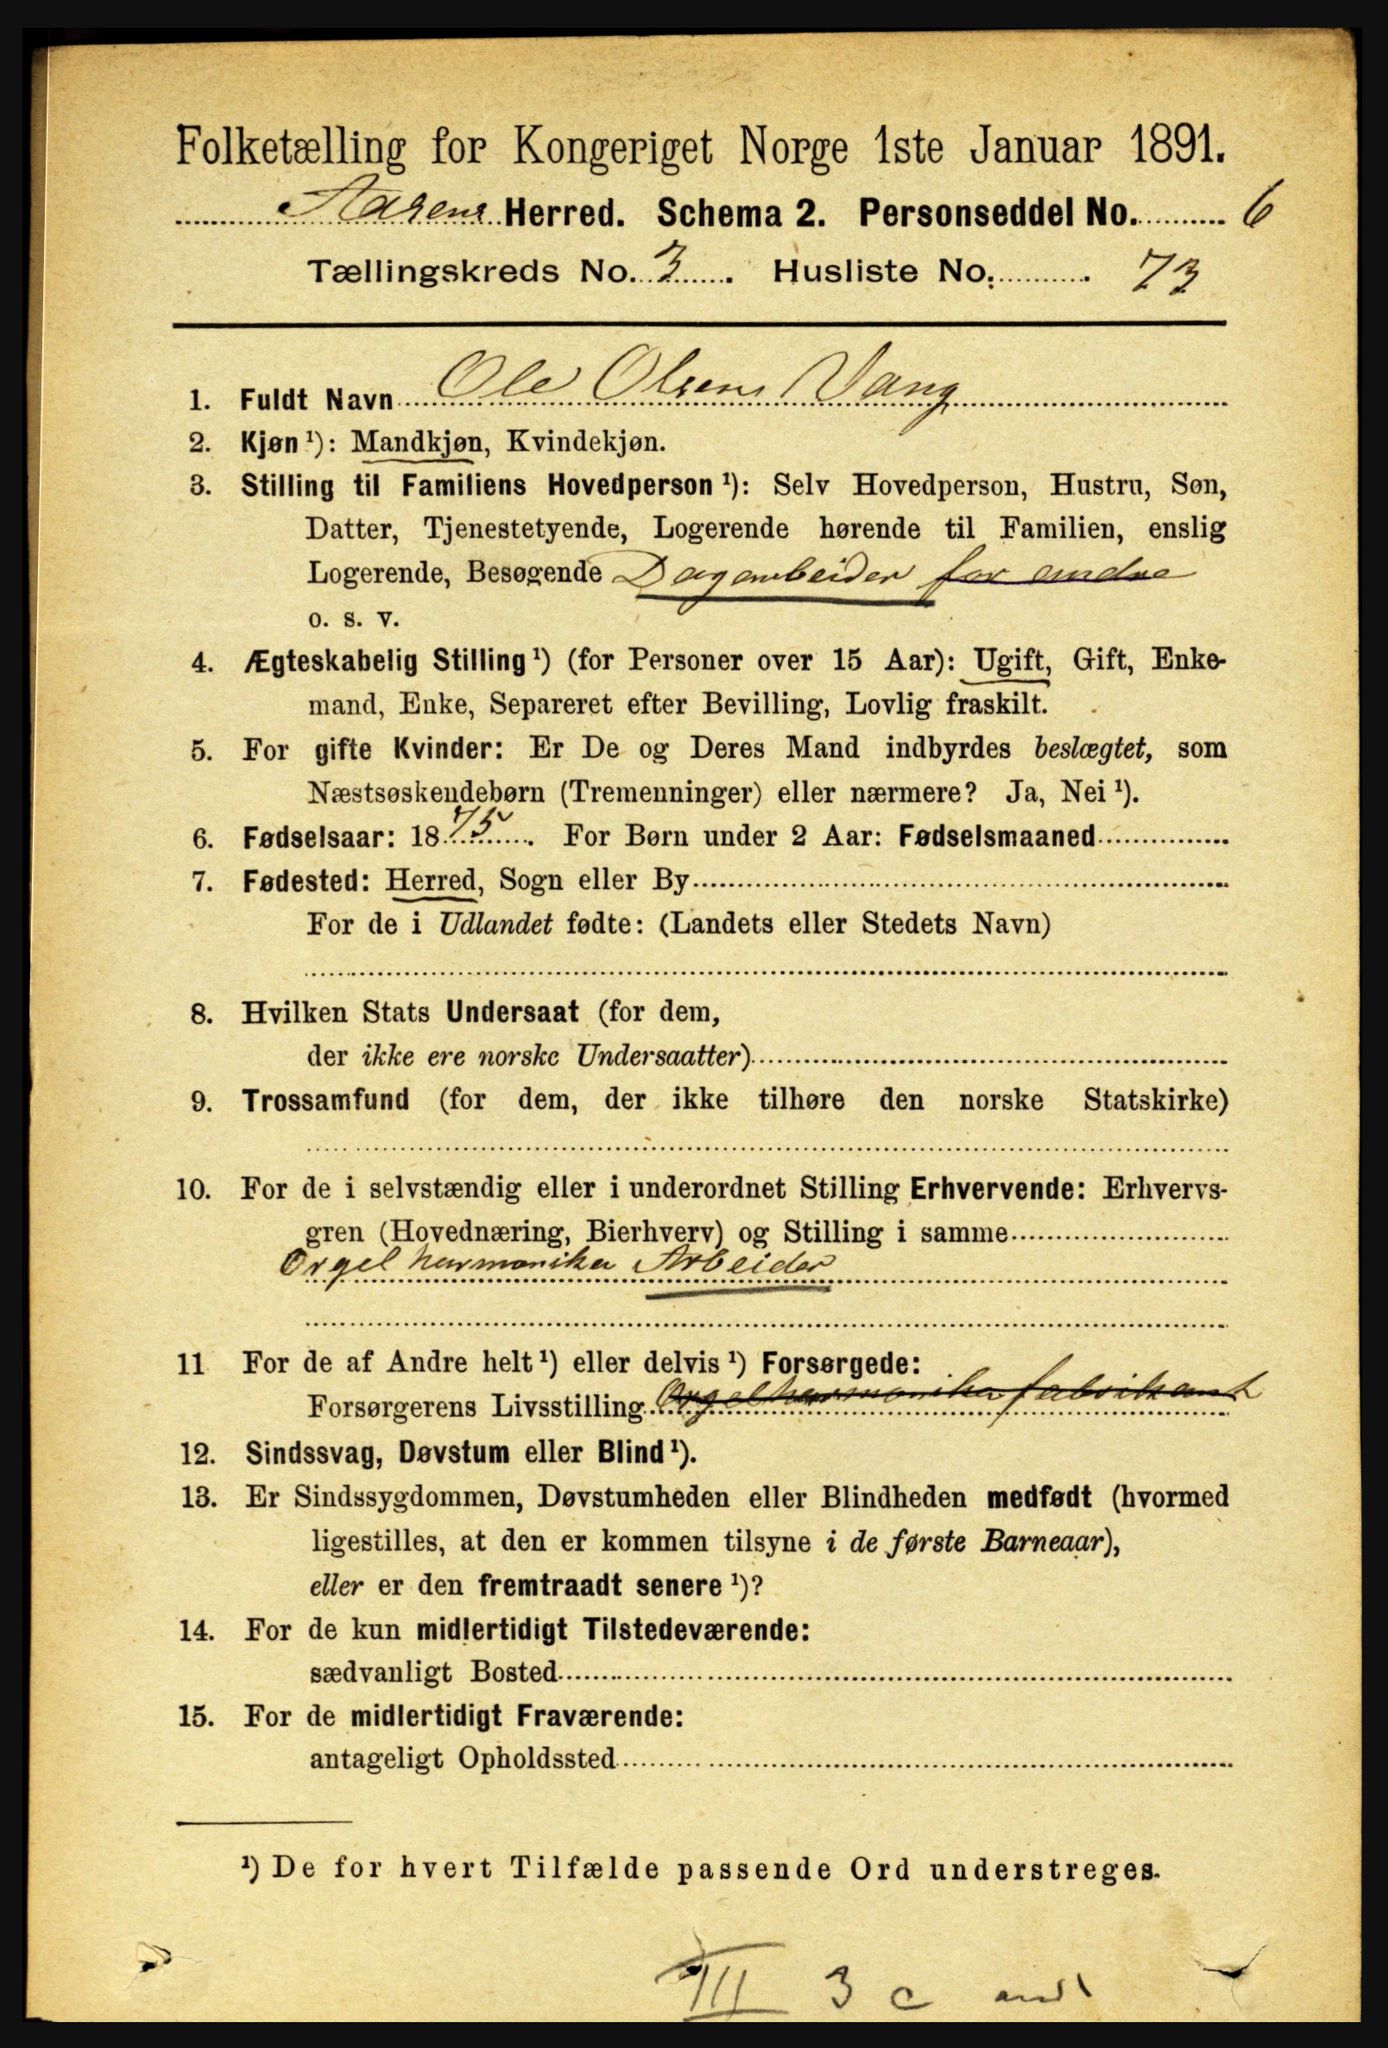 Folketælling for Kongeriget Norge 1ste Januar 1891.
Aasens Herred. Schema 2. Personseddel No. 6
Tællingskreds No. 3. Husliste No. 73
1. Fuldt Navn Ole Olsens Vang
2. Kjøn ¹): Mandkjøn, Kvindekjøn.
3. Stilling til Familiens Hovedperson ¹): Selv Hovedperson, Hustru, Søn,
Datter, Tjenestetyende, Logerende hørende til Familien, enslig
Logerende, Besøgende Dagarbeider for andre
o. s. v.
4. Ægteskabelig Stilling ¹) (for Personer over 15 Aar): Ugift, Gift, Enke-
mand, Enke, Separeret efter Bevilling, Lovlig fraskilt.
5. For gifte Kvinder: Er De og Deres Mand indbyrdes beslægtet, som
Næstsøskendebørn (Tremenninger) eller nærmere? Ja, Nei ¹).
6. Fødselsaar: 1875. For Børn under 2 Aar: Fødselsmaaned
7. Fødested: Herred, Sogn eller By
For de i Udlandet fødte: (Landets eller Stedets Navn)
8. Hvilken Stats Undersaat (for dem,
der ikke ere norske Undersaatter)
9. Trossamfund (for dem, der ikke tilhøre den norske Statskirke)
10. For de i selvstændig eller i underordnet Stilling Erhvervende: Erhvervs-
gren (Hovednæring, Bierhverv) og Stilling i samme
Orgel harmonika Arbeider
11 For de af Andre helt ¹) eller delvis ¹) Forsørgede:
Forsørgerens Livsstilling Orgelharmonika fabrikant
12. Sindssvag, Døvstum eller Blind ¹).
13. Er Sindssygdommen, Døvstumheden eller Blindheden medfødt (hvormed
ligestilles, at den er kommen tilsyne i de første Barneaar),
eller er den fremtraadt senere ¹)?
14. For de kun midlertidigt Tilstedeværende:
sædvanligt Bosted
15. For de midlertidigt Fraværende:
antageligt Opholdssted
¹) De for hvert Tilfælde passende Ord understreges.
III 3 c and